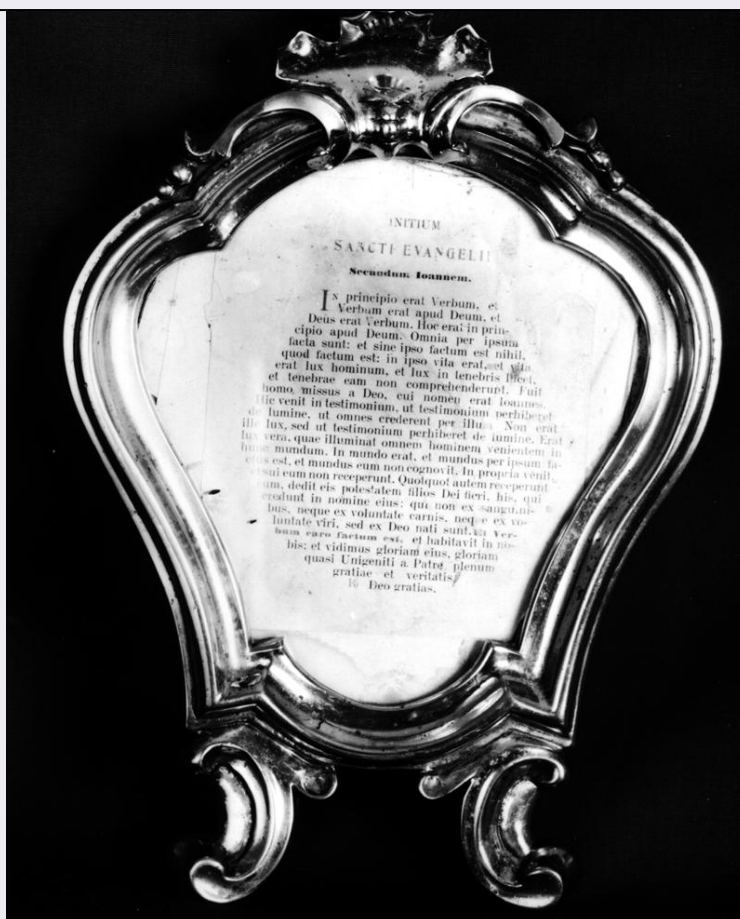 INITIUM
SANCTI EVANGELII
Secundum Ioannem.
In principio erat Verbum, et
Verbum erat apud Deum, et
Deus erat Verbum. Hoc erat in prin-
cipio apud Deum. Omnia per ipsum
facta sunt: et sine ipso factum est nihil,
quod factum est: in ipso vita erat, et vita
erat lux hominum, et lux in tenebris lucet,
et tenebrae eam non comprehenderunt. Fuit
homo missus a Deo, cui nomen erat Ioannes.
Hic venit in testimonium, ut testimonium perhiberet
de lumine, ut omnes crederent per illum. Non erat
ille lux, sed ut testimonium perhiberet de lumine. Erat
lux vera, quae illuminat omnem hominem venientem in
hunc mundum. In mundo erat, et mundus per ipsum fa-
ctus est, et mundus eum non cognovit. In propria venit,
et sui eum non receperunt. Quotquot autem receperunt
eum, dedit eis potestatem filios Dei fieri, his, qui
credunt in nomine eius: qui non ex sangui­ni-
bus, neque ex voluntate carnis, neque ex vo-
luntate viri, sed ex Deo nati sunt. Et Ver-
bum caro factum est, et habitavit in no-
bis: et vidimus gloriam eius, gloriam
quasi Unigeniti a Patre, plenum
gratiae et veritatis.
Deo gratias.